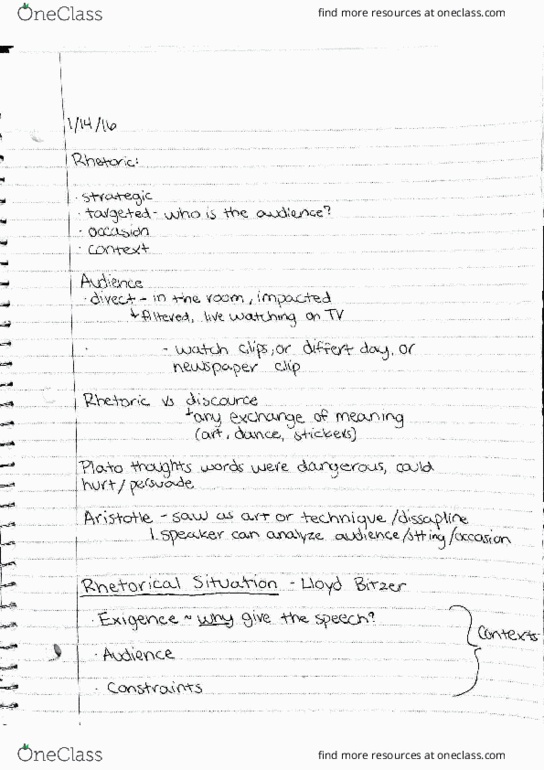 OneClass
find more resources at oneclass.com
1/14/16
Rhetoric:
· strategic
· targeted - who is the audience?
· occasion
· context
Audience
· direct - in the room, impacted
↳ filtered, live watching on TV
· - watch clips, or differt day, or
newspaper clip
Rhetoric vs discource
↳ any exchange of meaning
(art, dance, stickers)
Plato thoughts words were dangerous, could
hurt/persuade
Aristotle - saw as art or technique/dissapline
1. speaker can analyze audience/stting/occasion
Rhetorical Situation - Lloyd Bitzer
· Exigence ~ why give the speech?
· Audience
· Constraints
Contexts
OneClass
find more resources at oneclass.com